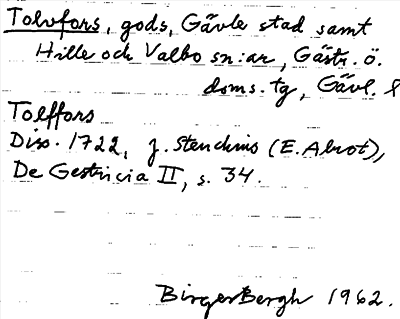 Tolvfors, gods, Gävle stad samt
Hille och Valbo sn:ar, Gästr. ö.
doms. tg, Gävl. l
Tolffors
Diss. 1722, J. Stenchius (E. Alrot),
De Gestricia II, s. 34.
Birger Bergh 1962.